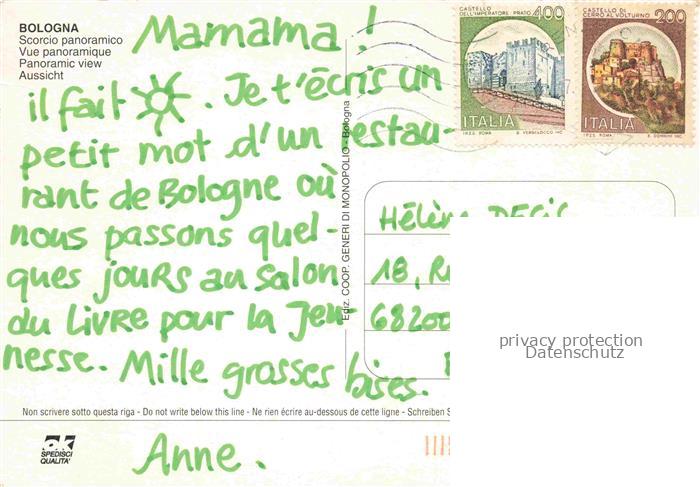 BOLOGNA
Scorcio panoramico
Vue panoramique
Panoramic view
Aussicht
Mamama !
il fait . Je t'écris un
petit mot d'un restau-
rant de Bologne où
nous passons quel-
ques jours au salon
du Livre pour la Jeu-
nesse. Mille grosses bises.
Anne.
Ediz. COOP. GENERI DI MONOPOLIO - Bologna
CASTELLO
DELL'IMPERATORE PRATO
400
ITALIA
I.P.Z.S. ROMA
CASTELLO DI
CERRO AL VOLTURNO
200
ITALIA
I.P.Z.S. ROMA
Hélène
18,
68200
privacy protection
Datenschutz
Non scrivere sotto questa riga - Do not write below this line - Ne rien écrire au-dessous de cette ligne - Schreiben
SPEDISCI
QUALITA'